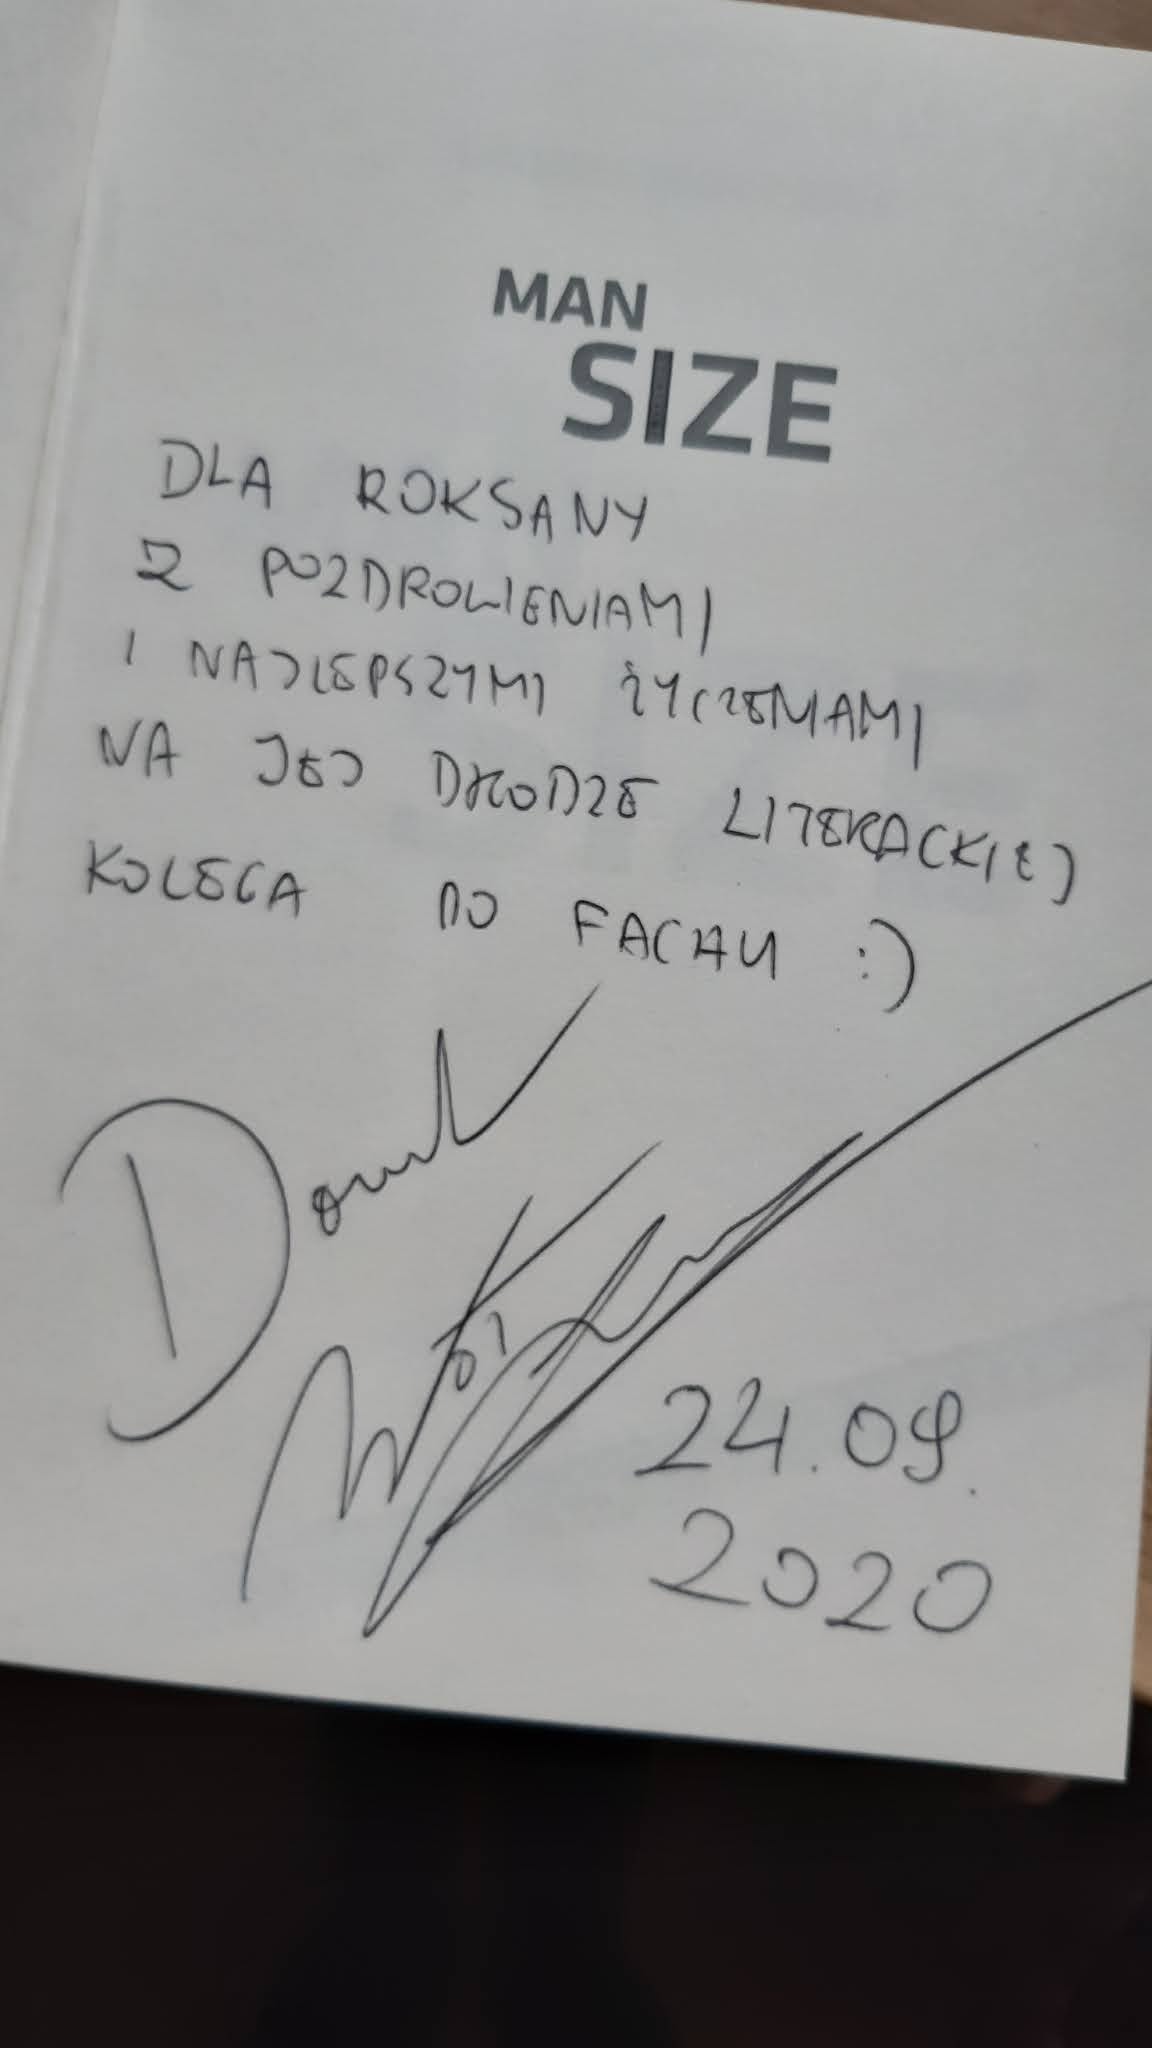 MAN
SIZE
DLA ROKSANY
Z POZDROWIENIAMI
I NAJLEPSZYMI ŻYCZENIAMI
NA JEJ DRODZE LITERACKIEJ
KOLEGA PO FACHU :)
24.09.
2020